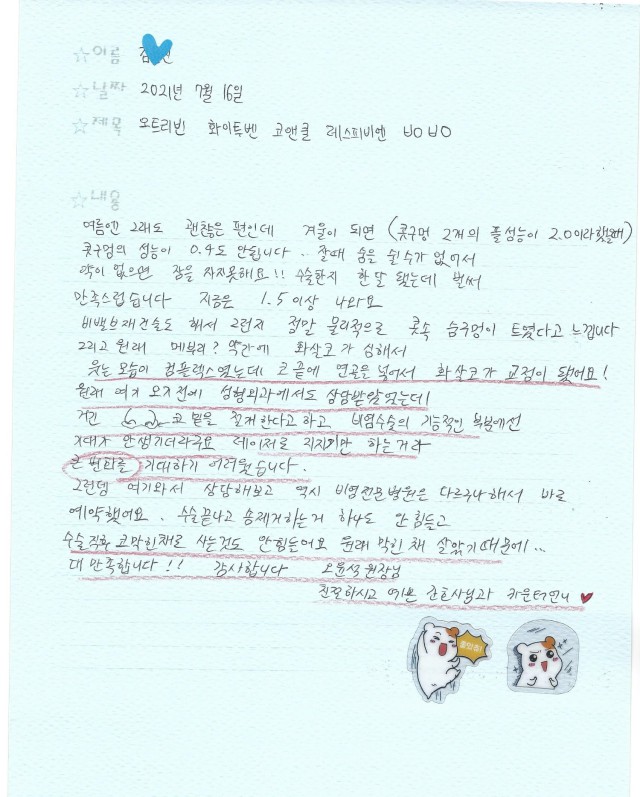 ☆이름 김 진
☆날짜 2021년 7월 16일
☆제목 오트리빈 화이투벤 코앤쿨 레스피비엔 ㅂㅇㅂㅇ
☆내용
여름엔 그래도 괜찮은 편인데 겨울이 되면 (콧구멍 2개의 풀성능이 2.0이라했을때)
콧구멍의 성능이 0.4도 안됩니다.. 잘때 숨을 쉴수가 없어서
약이 없으면 잠을 자지못해요!! 수술한지 한 달 됐는데 벌써
만족스럽습니다 지금은 1.5이상 나와요
비밸브재건술도 해서 그런지 정말 물리적으로 콧속 숨구멍이 트였다고 느낍니다
그리고 원래 메부리? 약간에 화살코가 심해서
웃는모습이 컴플렉스였는데 코끝에 연골을 넣어서 화살코가 교정이 됐어요!
원래 여기 오기전에 성형외과에서도 상담받았었는데
거긴 코 밑을 절개한다고하고 비염수술의 기능적인 부분에선
기대가 안생기더라구요 레이저로 지지기만 하는거라
큰 변화를 기대하기 어려웠습니다.
그런뎀 여기와서 상담해보고 역시 비염전문병원은 다르구나해서 바로
예약했어요. 수술끝나고 솜제거하는거 하나도 안힘들고
수술직후 코막힌채로 사는것도 안힘든어요 원래 막힌채 살았기때문에...
대만족합니다!! 감사합니다 오윤석원장님
친절하시고 예쁜 간호사님과 카운터언니 ♥